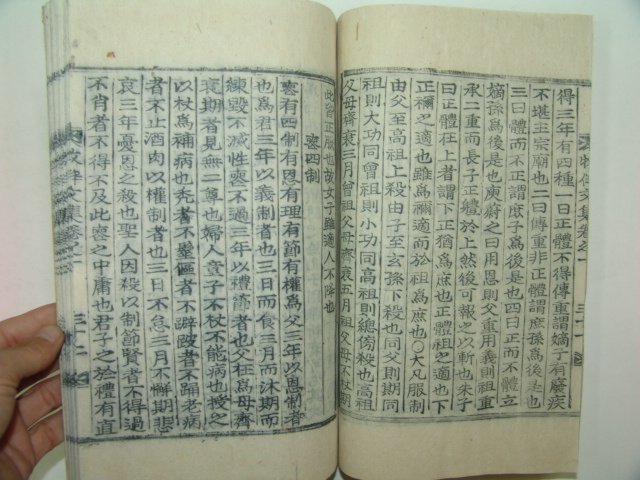 得三年有四種一曰正體不得傳重謂嫡子有廢疾
不堪主宗廟也二曰傳重非正體謂庶孫爲後是也
三曰體而不正謂庶子爲後是也四曰正而不體立
嫡孫爲後是也庾蔚之曰用恩則父重用義則祖重
承二重而長子正體於上然後可報之以斬也朱子
曰正體在上者謂下正猶爲庶也正體祖之適也下
正禰之適也雖爲禰適而於祖爲庶也○大凡服制
由父至高祖上殺也由子至玄孫下殺也同父則期同
祖則大功同曾祖則小功同高祖則緦傍殺也高祖
父母齊衰三月曾祖父母齊衰五月祖父母不杖期
此皆正服也故女子雖適人不降也
喪四制
喪有四制有恩有理有節有權爲父三年以恩制者
也爲君三年以義制者也三日而食三月而沐期而
練毀不滅性喪不過三年以禮節者也父在爲母齊
衰期者見無二尊也婦人童子不杖不能病也杖之
以杖爲補病也禿者不髽傴者不袒跛者不踊老病
者不止酒肉以權制者也三日不怠三月不懈期悲
哀三年憂恩之殺也聖人因殺以制節賢者不得過
不肖者不得不及此喪之中庸也君子之於禮有直